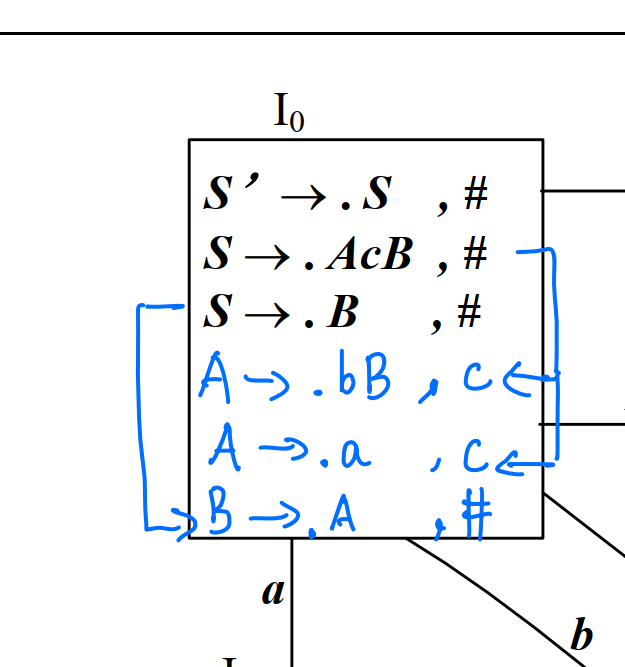 I₀
S' → . S , #
S → . AcB , #
S → . B , #
A → . bB , c
A → . a , c
B → . A , #
a
b